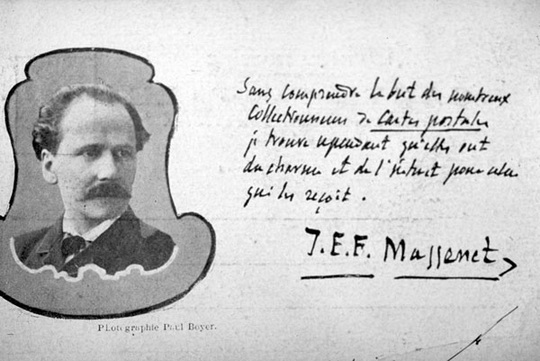 Sans comprendre le but des nombreux
Collectionneurs de Cartes postales
je trouve cependant qu'elles ont
du charme et de l'intérêt pour celui
qui les reçoit.
J.E.F. Massenet
Photographie Paul Boyer.